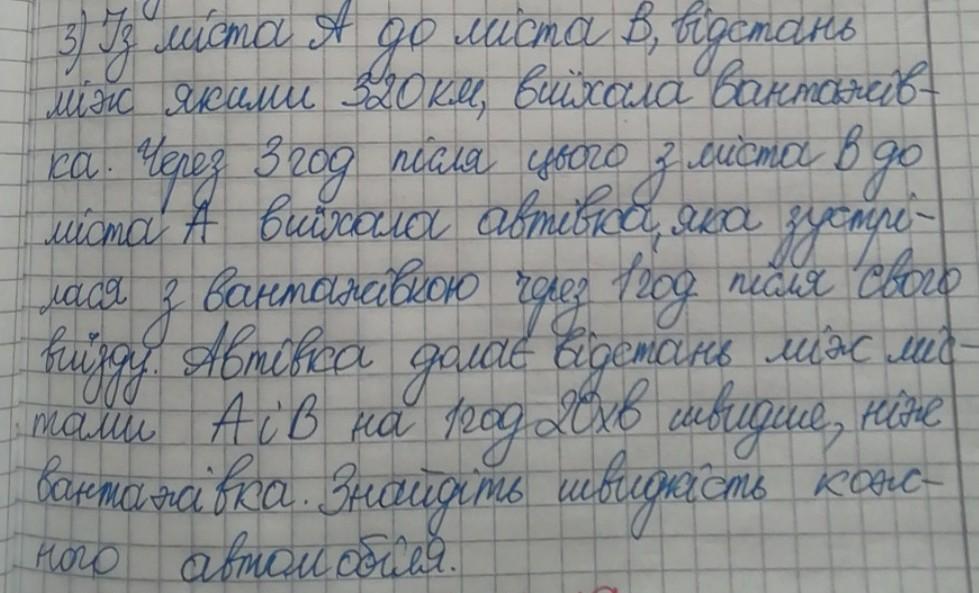 3) Із міста А до міста В, відстань
між якими 320 км, виїхала вантажів-
ка. Через 3 год після цього з міста В до
міста А виїхала автівка, яка зустрі-
лася з вантажівкою через 1 год після свого
виїзду. Автівка долає відстань між міс-
тами А і В на 1 год 20 хв швидше, ніж
вантажівка. Знайдіть швидкість кож-
ного автомобіля.